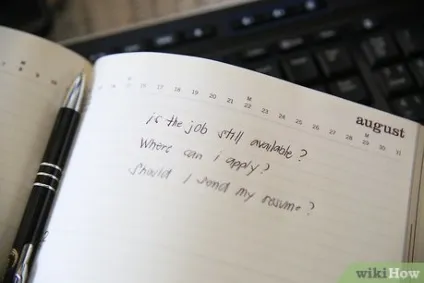 august
19 20 21 22 23 24 25 26 27 28 29 30 31
is the job still available?
Where can i apply?
Should I send my resume?
wikiHow